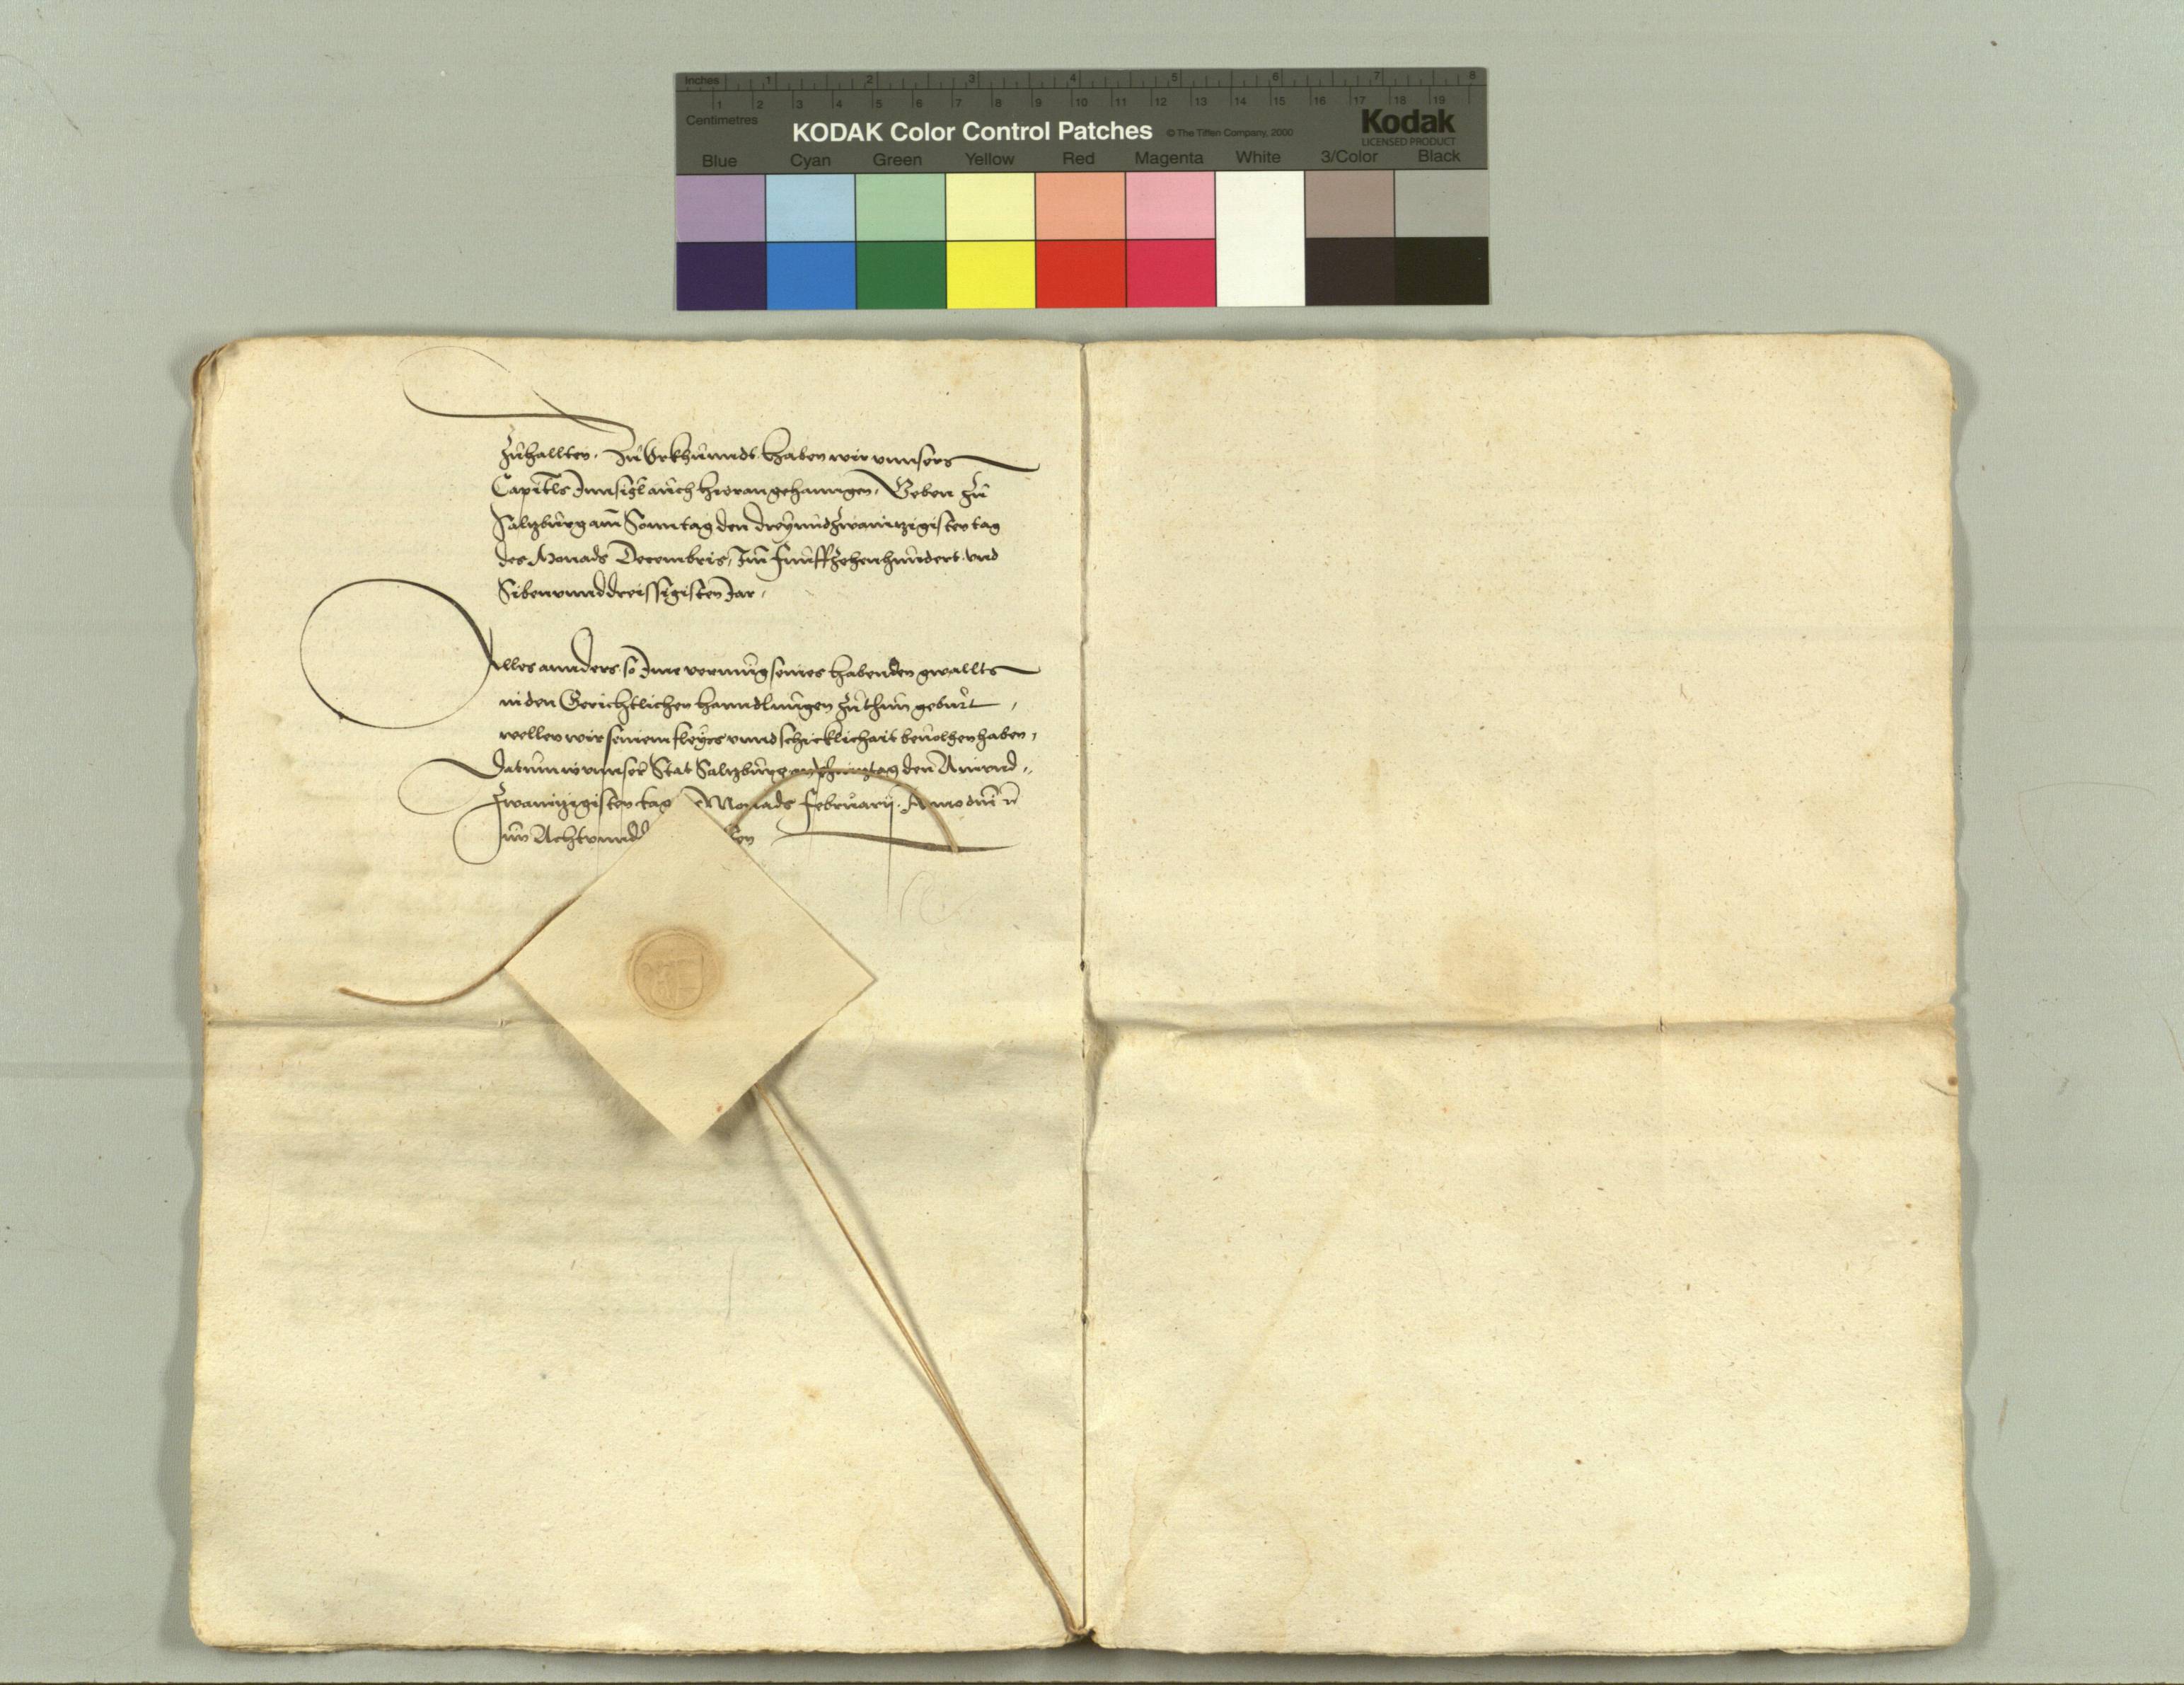 Inches 1 2 3 4 5 6 7 8
1 2 3 4 5 6 7 8 9 10 11 12 13 14 15 16 17 18 19
Centimetres
KODAK Color Control Patches © The Tiffen Company, 2000 Kodak
LICENSED PRODUCT
Blue Cyan Green Yellow Red Magenta White 3/Color Black
zuhallten. Zu Urkhunndt haben wir vnnsers
Capitls Innsigl auch hieran gehanngen, Geben zu
Saltzburg am Sonntag den dreyundzwaintzigisten tag
des Monads Decembris, Im Funffzehenhundert vnd
Sibenvnnddreissigisten Jar,
Alles annders so Ime vermug seines habenden gwallts
in den Gerichtlichen hanndlungen zuthun geburt,
wellen wir seinem fleys vnnd schicklichait beuolhen haben,
Datum in vnnser Stat Saltzburg am phintztag den Ainvnd
zwaintzigisten tag Monads Februarij. Anno dni
im Achtvnndd